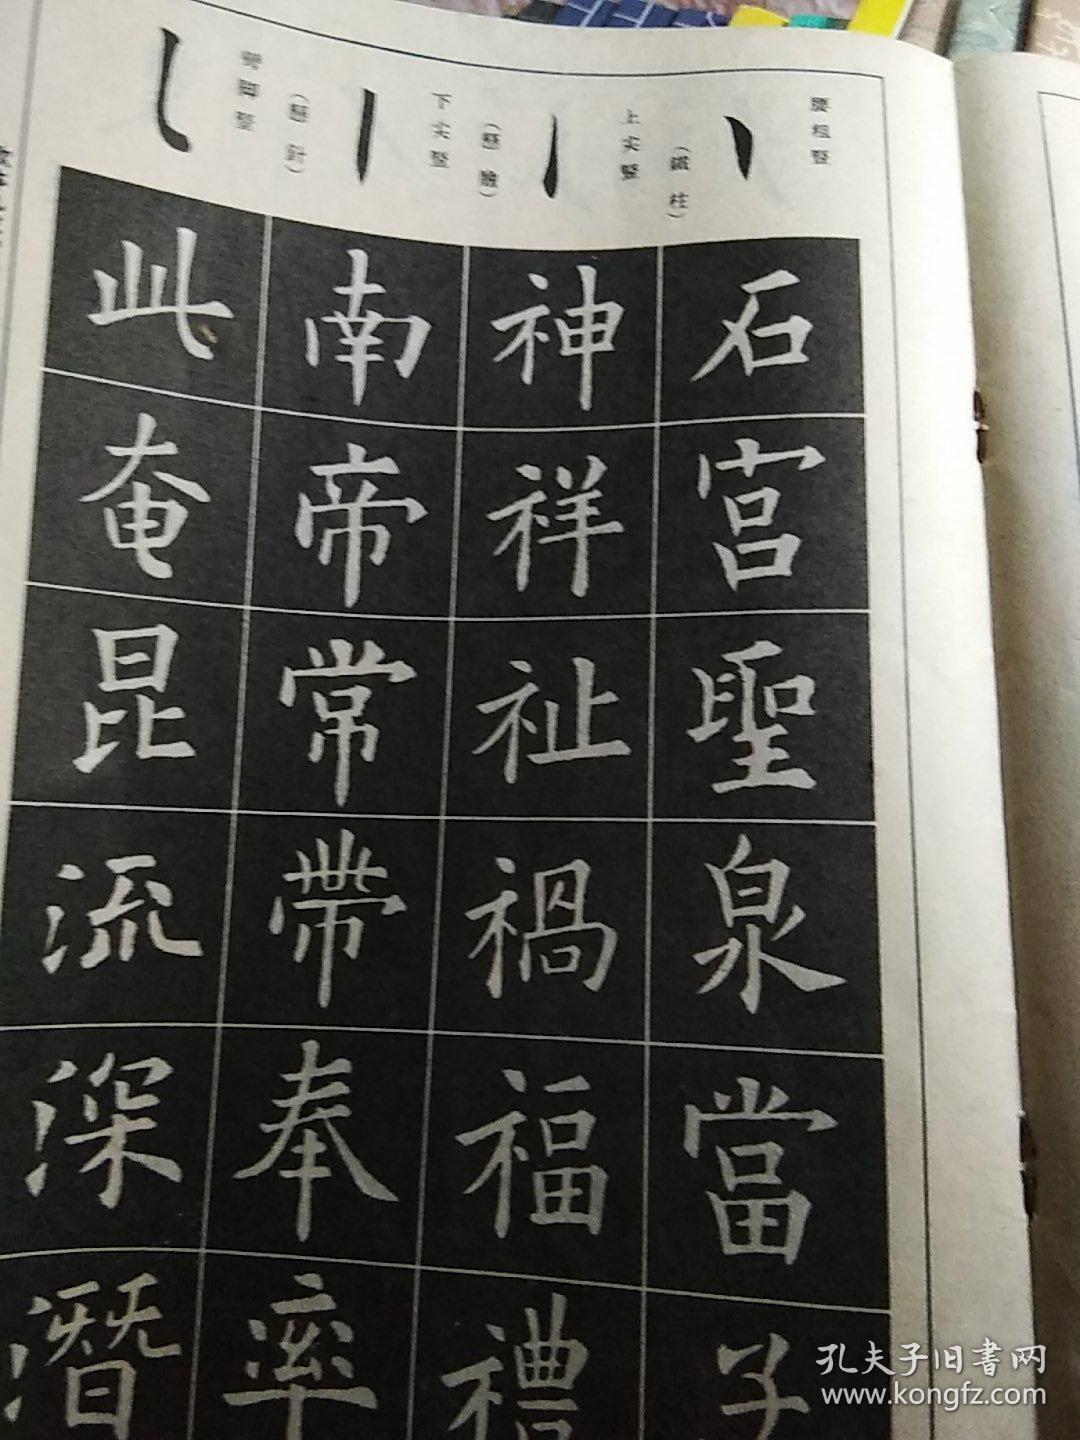 腰粗竪
(鐵柱)
上尖竪
(懸膽)
下尖竪
(懸針)
彎脚竪
石宫聖泉當子
神祥祉禍福禮
南帝常帶奉率
此奄昆流深潛
孔夫子旧書网
www.kongfz.com